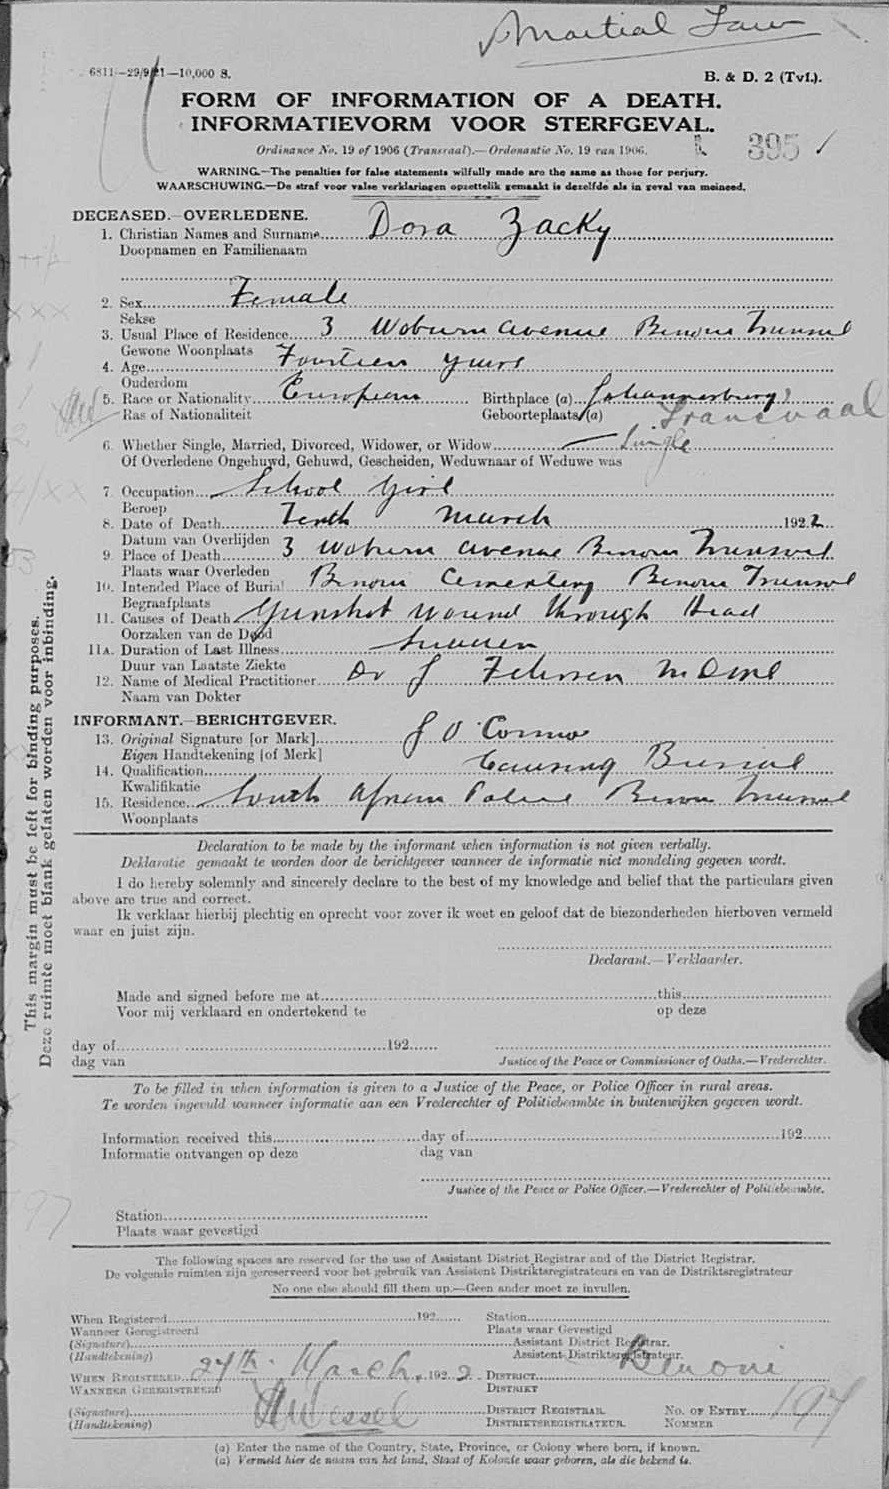 Martial Law
6811—29/9/21—10,000 S.
B. & D. 2 (Tvl.).
FORM OF INFORMATION OF A DEATH.
INFORMATIEVORM VOOR STERFGEVAL.
Ordinance No. 19 of 1906 (Transvaal).—Ordonantie No. 19 van 1906.
395
WARNING.—The penalties for false statements wilfully made are the same as those for perjury.
WAARSCHUWING.—De straf voor valse verklaringen opzettelik gemaakt is dezelfde als in geval van meineed.
DECEASED.—OVERLEDENE.
1. Christian Names and Surname Dora Zacky
Doopnamen en Familienaam
2. Sex Female
Sekse
3. Usual Place of Residence 3 Woburn Avenue Benoni Transvaal
Gewone Woonplaats
4. Age Fourteen years
Ouderdom
5. Race or Nationality European Birthplace (a) Johannesburg
Ras of Nationaliteit Geboorteplaats (a) Transvaal
6. Whether Single, Married, Divorced, Widower, or Widow Single
Of Overledene Ongehuwd, Gehuwd, Gescheiden, Weduwnaar of Weduwe was
7. Occupation School Girl
Beroep
8. Date of Death Tenth March 1922
Datum van Overlijden
9. Place of Death 3 Woburn Avenue Benoni Transvaal
Plaats waar Overleden
10. Intended Place of Burial Benoni Cementery Benoni Transvaal
Begraafplaats
11. Causes of Death Gunshot wound through Head
Oorzaken van de Dood
11A. Duration of Last Illness Sudden
Duur van Laatste Ziekte
12. Name of Medical Practitioner Dr J
Naam van Dokter
INFORMANT.—BERICHTGEVER.
13. Original Signature [or Mark] J O'Connor
Eigen Handtekening [of Merk]
14. Qualification Causing Burial
Kwalifikatie
15. Residence South African Police Benoni Transvaal
Woonplaats
This margin must be left for binding purposes.
Deze ruimte moet blank gelaten worden voor inbinding.
Declaration to be made by the informant when information is not given verbally.
Deklaratie gemaakt te worden door de berichtgever wanneer de informatie niet mondeling gegeven wordt.
I do hereby solemnly and sincerely declare to the best of my knowledge and belief that the particulars given
above are true and correct.
Ik verklaar hierbij plechtig en oprecht voor zover ik weet en geloof dat de biezonderheden hierboven vermeld
waar en juist zijn.
Declarant.—Verklaarder.
Made and signed before me at this
Voor mij verklaard en ondertekend te op deze
day of 192
dag van Justice of the Peace or Commissioner of Oaths.—Vrederechter.
To be filled in when information is given to a Justice of the Peace, or Police Officer in rural areas.
Te worden ingevuld wanneer informatie aan een Vrederechter of Politiebeambte in buitenwijken gegeven wordt.
Information received this day of 192
Informatie ontvangen op deze dag van
Justice of the Peace or Police Officer.—Vrederechter of Politiebeambte.
Station
Plaats waar gevestigd
The following spaces are reserved for the use of Assistant District Registrar and of the District Registrar.
De volgende ruimten zijn gereserveerd voor het gebruik van Assistent Distriktsregistrateurs en van de Distriktsregistrateur
No one else should fill them up.—Geen ander moet ze invullen.
When Registered 192 Station
Wanneer Geregistreerd Plaats waar Gevestigd
(Signature) Assistant District Registrar.
(Handtekening) Assistent-Distriktsregistrateur.
When Registered 24th March, 1922 District Benoni
Wanneer Geregistreerd Distrikt
(Signature) Wessel District Registrar. No. of Entry 197
(Handtekening) Distriktsregistrateur. Nommer
(a) Enter the name of the Country, State, Province, or Colony where born, if known.
(a) Vermeld hier de naam van het land, Staat of Kolonie waar geboren, als die bekend is.